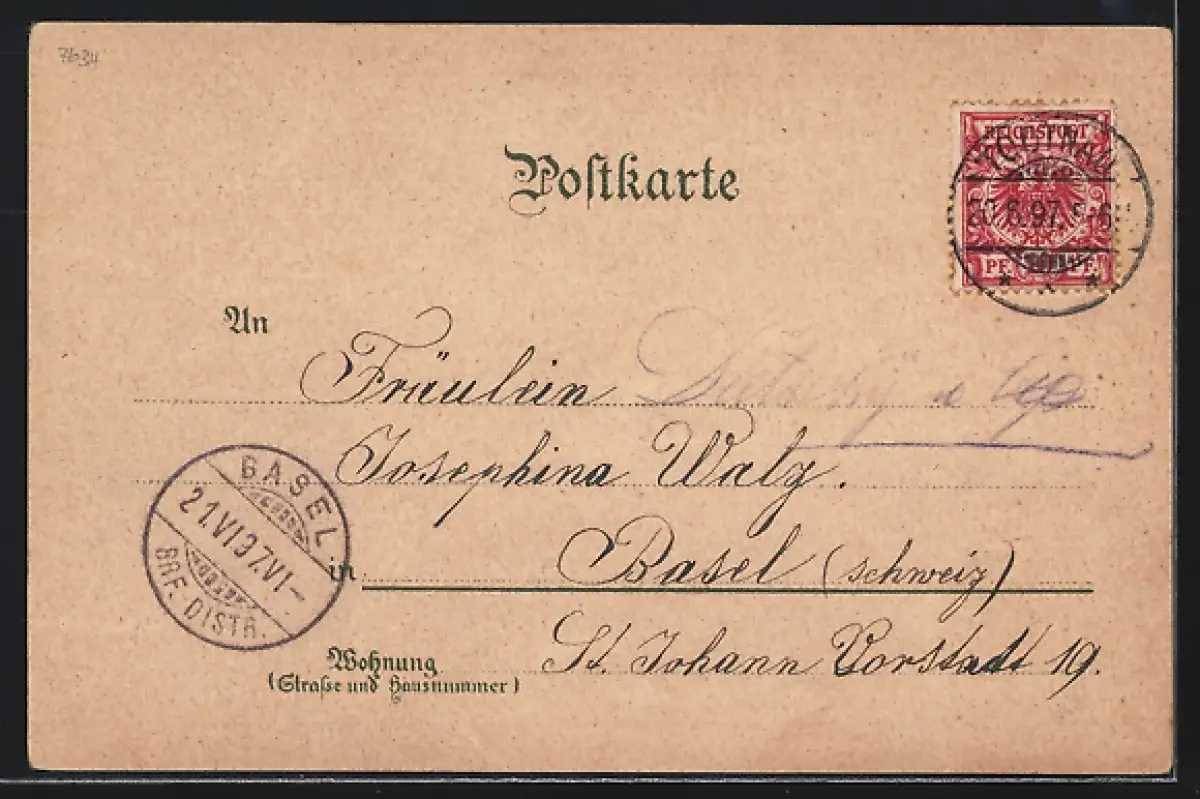 7634
Postkarte
REICHSPOST
TODTNAU
20.6.97. 5-6
PF. PF.
An
Fräulein
Josephina Walz.
in Basel (Schweiz)
BASEL
21.VI.97.VI-
BRF. DISTR.
Wohnung St. Johann Vorstadt 19.
(Straße und Hausnummer)